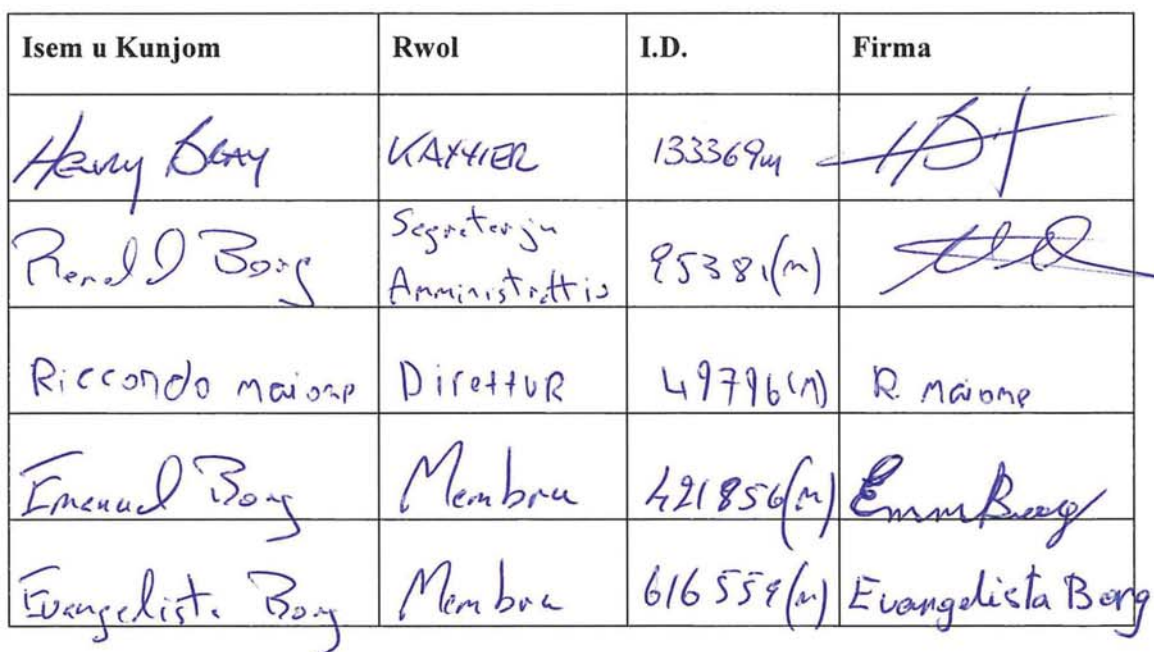 Isem u Kunjom Rwol I.D. Firma
Henry KAXXIER 133369m
Renald Borg Segretarju
Amministrattiv 95381(m)
Riccondo maione DirettuR 49796(M) R. maione
Emanuel Borg Membru 421856(m) Emm Borg
Evangelista Borg Membru 616559(m) Evangelista Borg